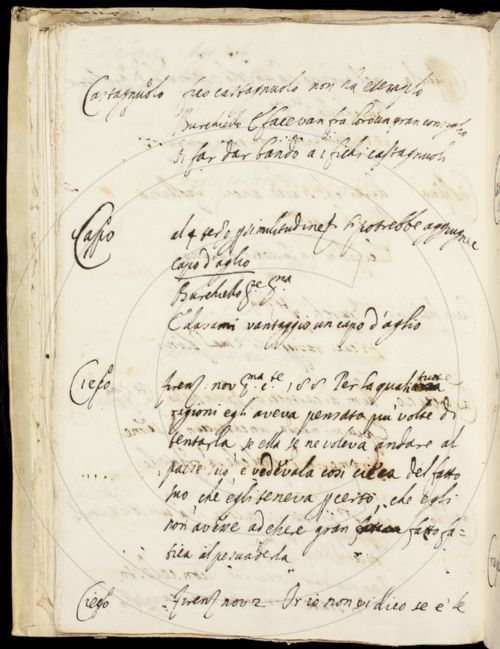 Castagnuolo fico castagnuolo non ha esempio
Burchiello E facevan fra loro un gran consiglio
di far dar bando a i fichi castagnuoli
Capo al 4 similitudine si potrebbe aggiugnere
capo d'aglio
Burchiello
E davami vantaggio un capo d'aglio
Cieco Firenz. nov. 188 Per la qual
cagioni egli aveva pensato più volte di
tentarla se ella se ne voleva andare al
paese, e vedevala così cieca del fatto
suo che egli teneva certo, che egli
non avesse ad esser gran fatto fa-
tica al persuaderla
Cieco Firenz nov 2 Or io non vi dico se è le